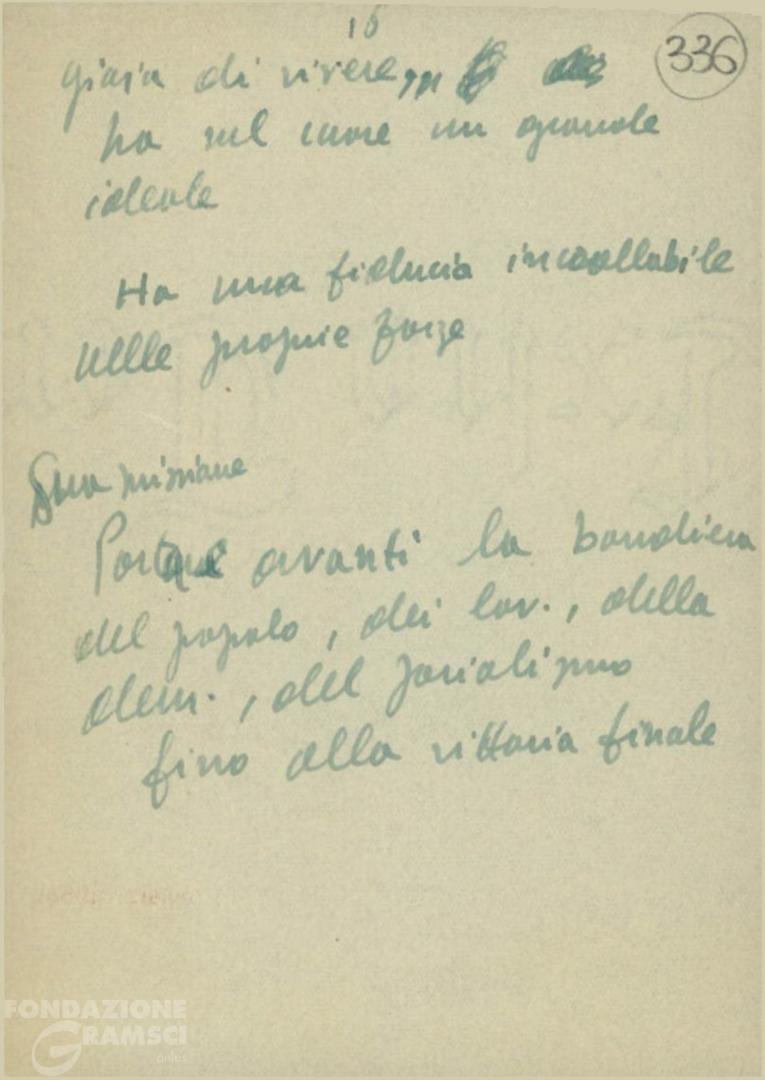 16
336
gioia di vivere,
ha sul cuore un grande
ideale
Ha una fiducia incrollabile
nelle proprie forze
Sua missione
Portare avanti la bandiera
del popolo, dei lav., della
dem., del socialismo
fino alla vittoria finale
FONDAZIONE
GRAMSCI
onlus